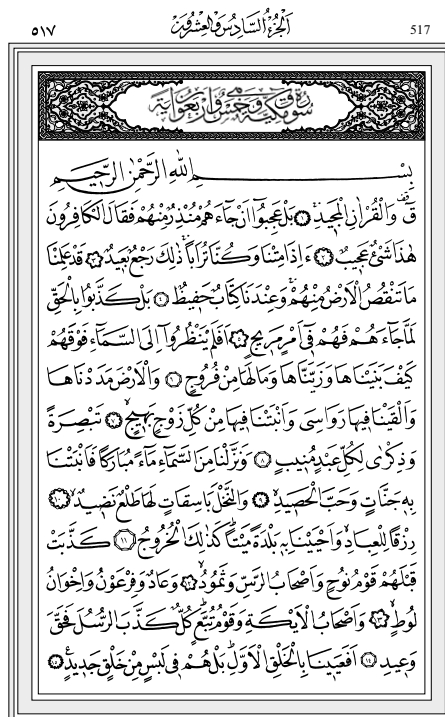 ٥١٧ اَلْجُزْءُ السَّادِسُ وَالْعِشْرُونَ 517
سُورَةُ قٓ مَكِّيَّةٌ وَهِيَ خَمْسٌ وَاَرْبَعُونَ اٰيَةً
بِسْمِ اللّٰهِ الرَّحْمٰنِ الرَّحٖيمِ
قٓ وَالْقُرْاٰنِ الْمَجٖيدِ ﴿١﴾ بَلْ عَجِبُٓوا اَنْ جَٓاءَهُمْ مُنْذِرٌ مِنْهُمْ فَقَالَ الْكَافِرُونَ
هٰذَا شَىْءٌ عَجٖيبٌ ﴿٢﴾ ءَاِذَا مِتْنَا وَكُنَّا تُرَابًا ذٰلِكَ رَجْعٌ بَعٖيدٌ ﴿٣﴾ قَدْ عَلِمْنَا
مَا تَنْقُصُ الْاَرْضُ مِنْهُمْ وَعِنْدَنَا كِتَابٌ حَفٖيظٌ ﴿٤﴾ بَلْ كَذَّبُوا بِالْحَقِّ
لَمَّا جَٓاءَهُمْ فَهُمْ فٖٓى اَمْرٍ مَرٖيجٍ ﴿٥﴾ اَفَلَمْ يَنْظُرُٓوا اِلَى السَّمَٓاءِ فَوْقَهُمْ
كَيْفَ بَنَيْنَاهَا وَزَيَّنَّاهَا وَمَا لَهَا مِنْ فُرُوجٍ ﴿٦﴾ وَالْاَرْضَ مَدَدْنَاهَا
وَاَلْقَيْنَا فٖيهَا رَوَاسِىَ وَاَنْبَتْنَا فٖيهَا مِنْ كُلِّ زَوْجٍ بَهٖيجٍ ﴿٧﴾ تَبْصِرَةً
وَذِكْرٰى لِكُلِّ عَبْدٍ مُنٖيبٍ ﴿٨﴾ وَنَزَّلْنَا مِنَ السَّمَٓاءِ مَٓاءً مُبَارَكًا فَاَنْبَتْنَا
بِهٖ جَنَّاتٍ وَحَبَّ الْحَصٖيدِ ﴿٩﴾ وَالنَّخْلَ بَاسِقَاتٍ لَهَا طَلْعٌ نَضٖيدٌ ﴿١٠﴾
رِزْقًا لِلْعِبَادِ وَاَحْيَيْنَا بِهٖ بَلْدَةً مَيْتًا كَذٰلِكَ الْخُرُوجُ ﴿١١﴾ كَذَّبَتْ
قَبْلَهُمْ قَوْمُ نُوحٍ وَاَصْحَابُ الرَّسِّ وَثَمُودُ ﴿١٢﴾ وَعَادٌ وَفِرْعَوْنُ وَاِخْوَانُ
لُوطٍ ﴿١٣﴾ وَاَصْحَابُ الْاَيْكَةِ وَقَوْمُ تُبَّعٍ كُلٌّ كَذَّبَ الرُّسُلَ فَحَقَّ
وَعٖيدِ ﴿١٤﴾ اَفَعَيٖينَا بِالْخَلْقِ الْاَوَّلِ بَلْ هُمْ فٖى لَبْسٍ مِنْ خَلْقٍ جَدٖيدٍ ﴿١٥﴾